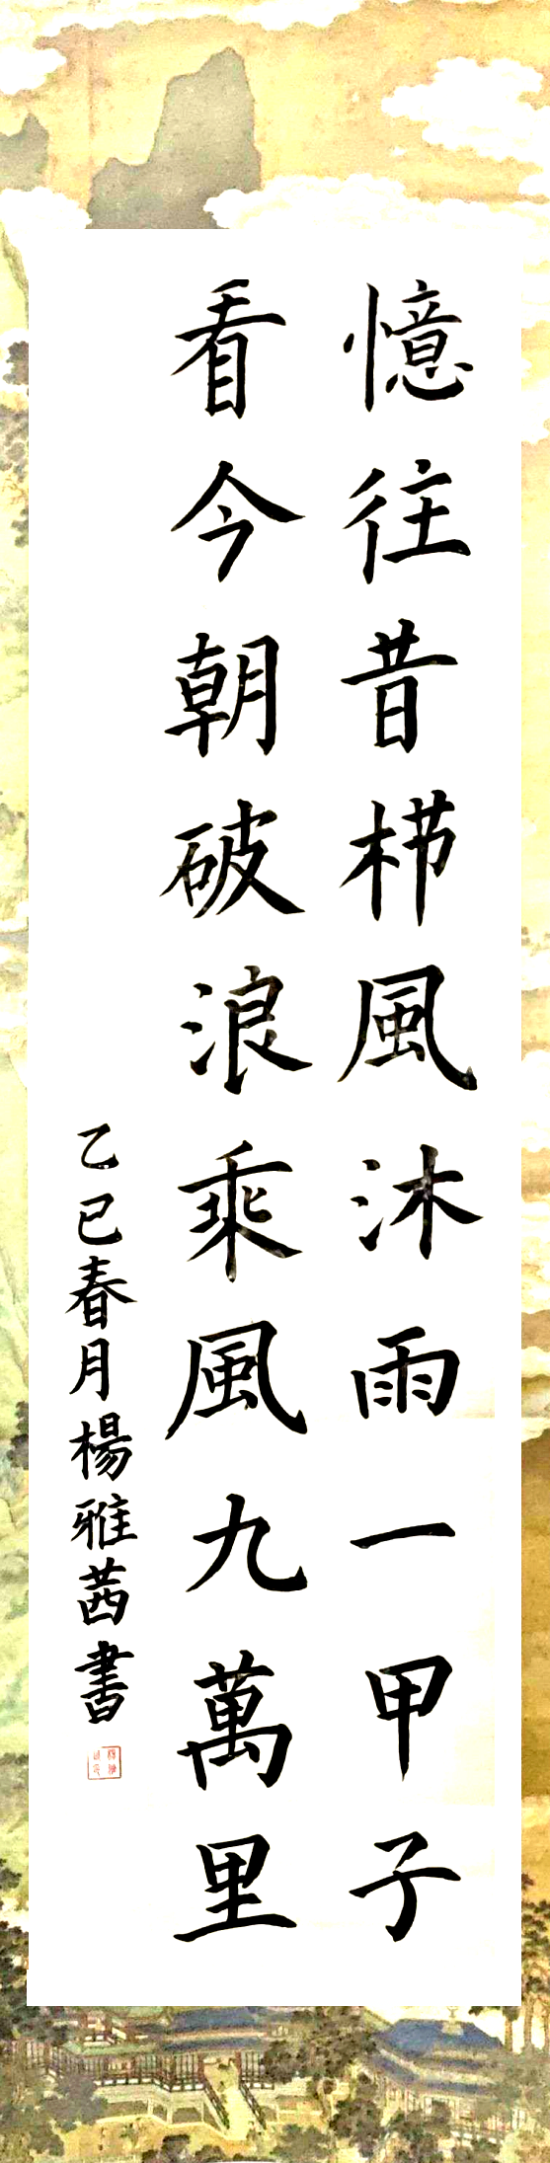 憶往昔栉風沐雨一甲子
看今朝破浪乘風九萬里
乙巳春月楊雅茜書